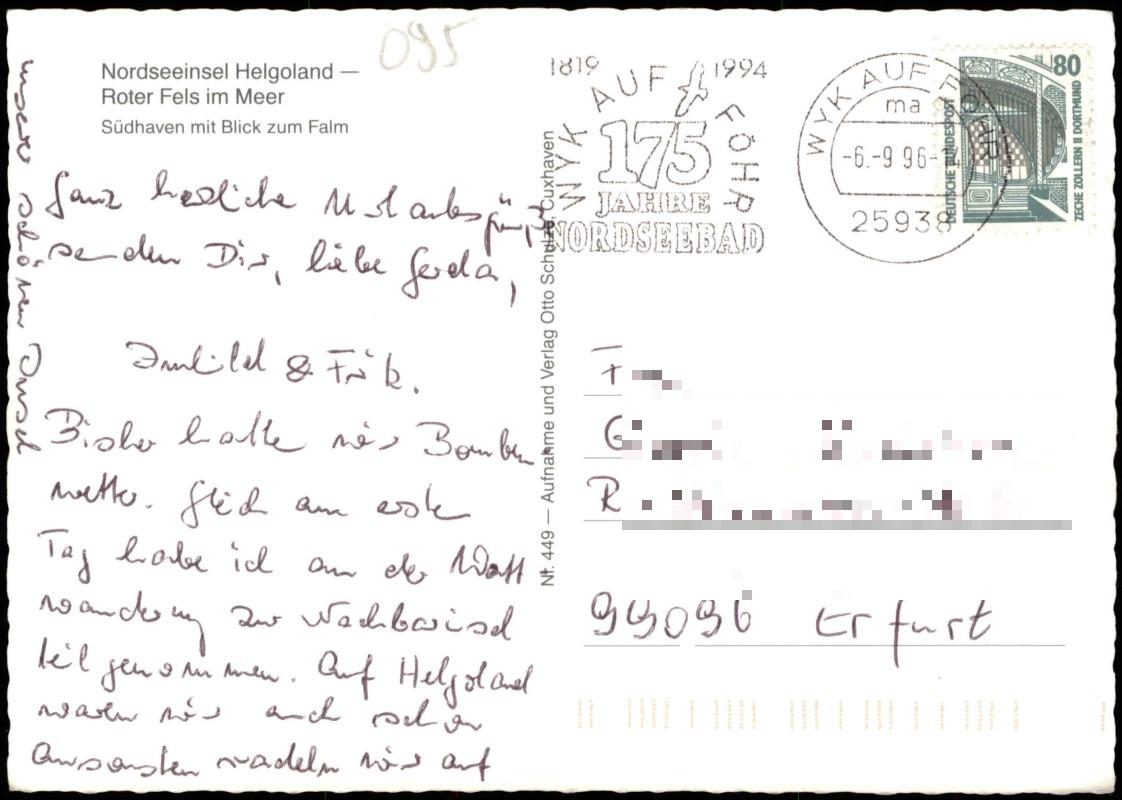 095
Nordseeinsel Helgoland —
Roter Fels im Meer
Südhaven mit Blick zum Falm
Ganz herzliche Urlaubsgrüße
senden Dir, liebe Gerda,
Imhild & Frik.
Bisher hatte wir Bomben
wetter. Gleich am erste
Tag habe ich an der Watt
wanderung zur Nachbarinsel
teilgenommen. Auf Helgoland
waren wir auch schon
Ansonsten radeln wir auf
unserer schönen Insel
Nr. 449 — Aufnahme und Verlag Otto Schulze, Cuxhaven
1819 1994
WYK AUF FÖHR
175
JAHRE
NORDSEEBAD
WYK AUF FÖHR
ma
-6.-9 96-
25938
80
DEUTSCHE BUNDESPOST
ZECHE ZOLLERN II DORTMUND
F
G
R
99096 Erfurt